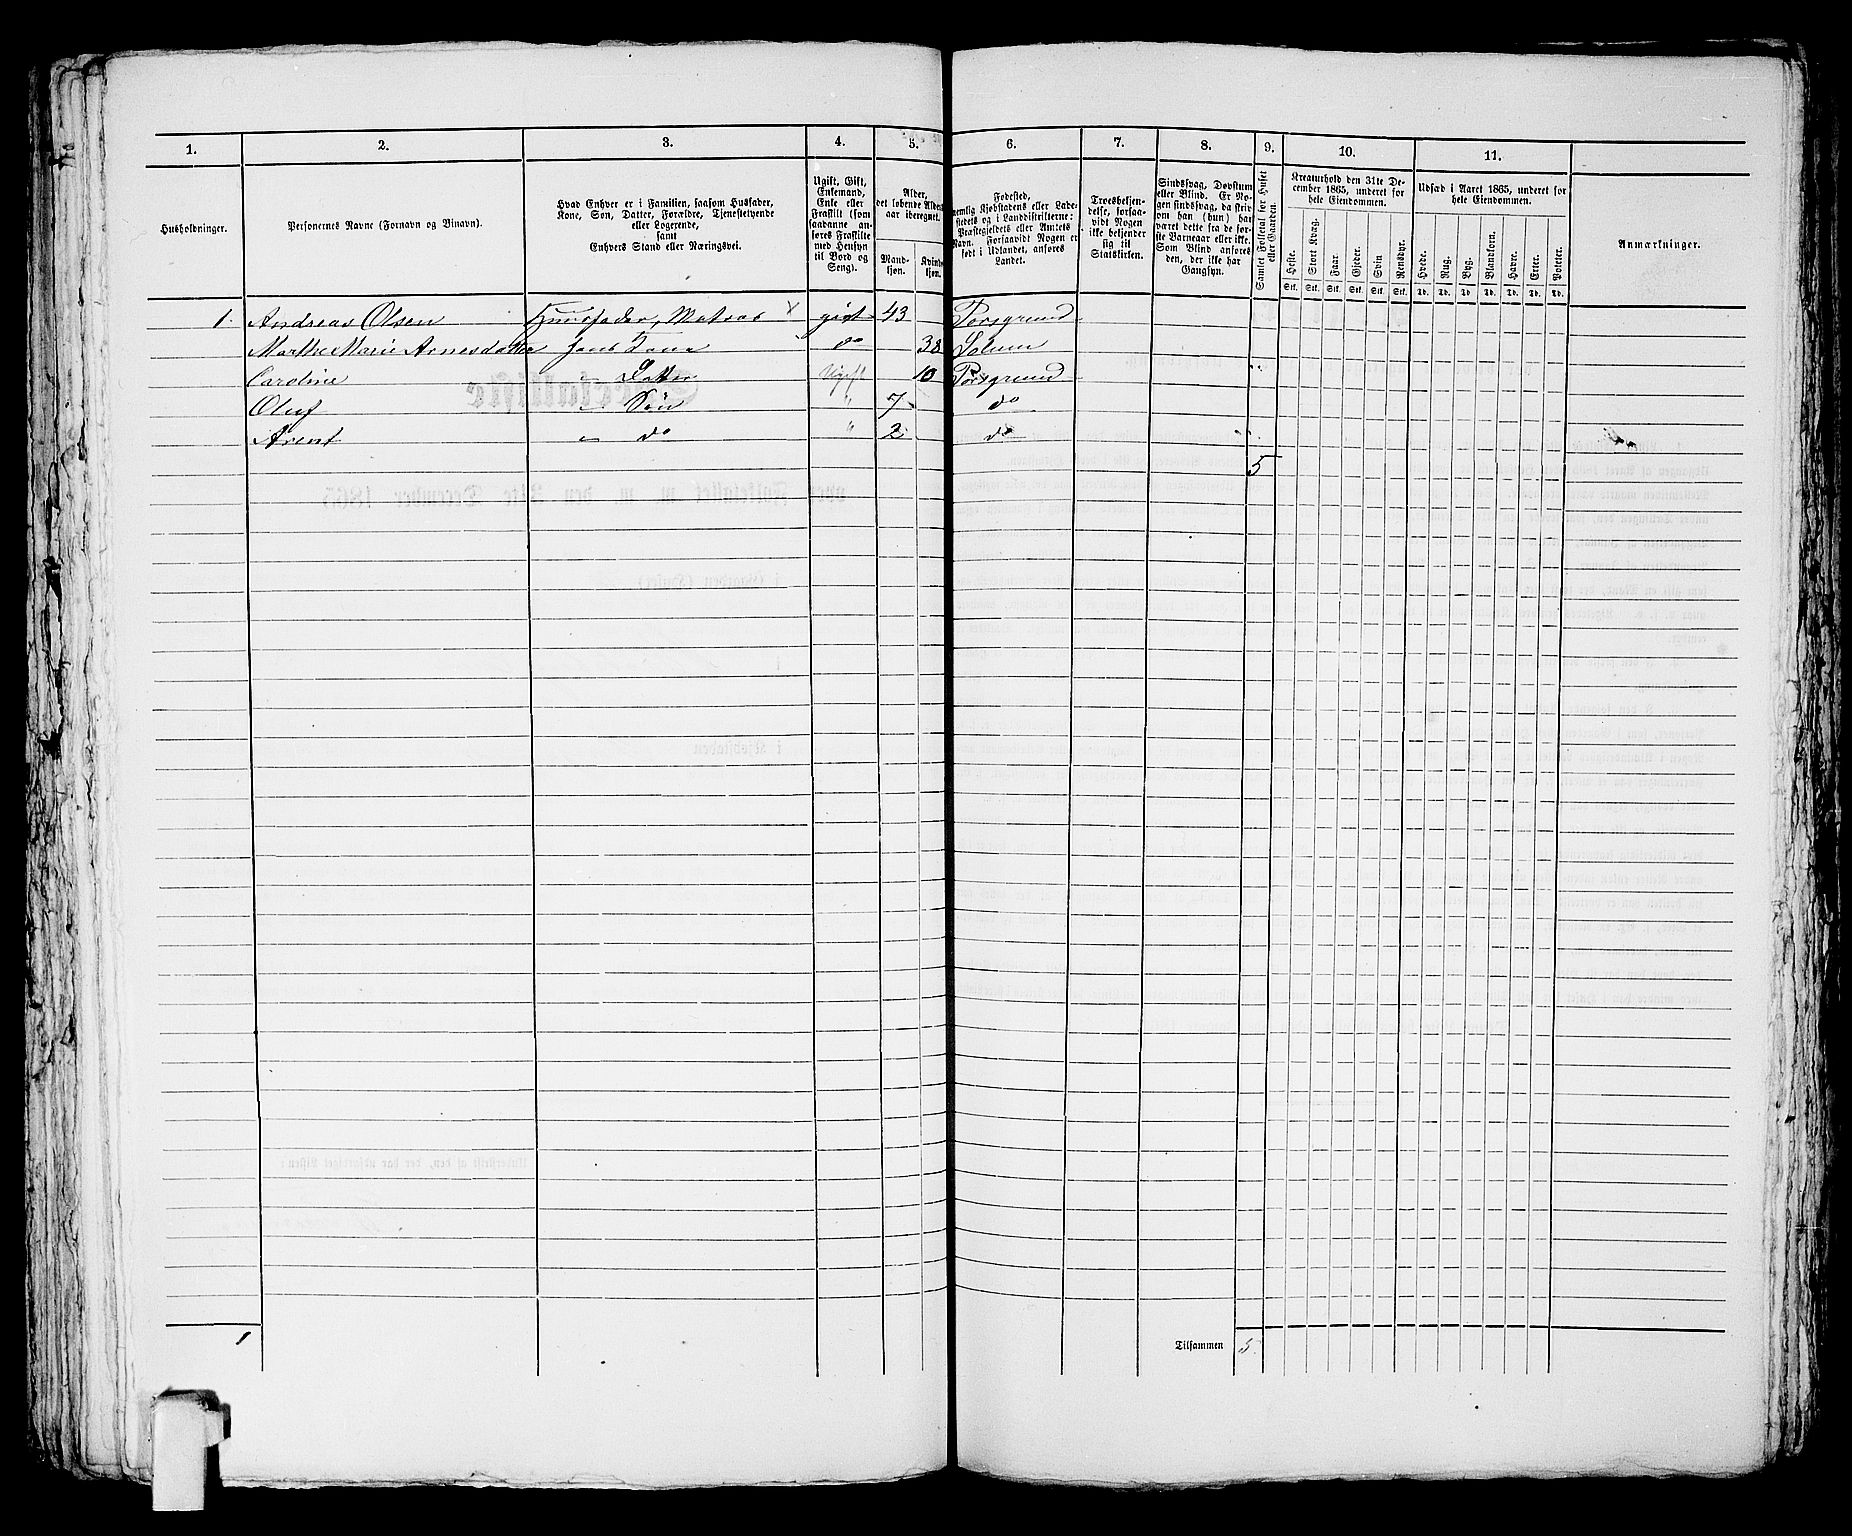 1. 2. 3. 4. 5. 6. 7. 8. 9. 10. 11.
Husholdninger.
Personernes Navne (Fornavn og Binavn).
Hvad Enhver er i Familien, saasom Husfader,
Kone, Søn, Datter, Forældre, Tjenestetyende
eller Logerende,
samt
Enhvers Stand eller Næringsvei.
Ugift, Gift,
Enkemand,
Enke eller
Fraskilt (som
saadanne an-
føres Fraskilte
med Hensyn
til Bord og
Seng).
Alder,
det løbende Alders-
aar iberegnet.
Mand-
kjøn.
Kvinde-
kjøn.
Fødested,
nemlig Kjøbstadens eller Lade-
stedets og i Landdistrikterne:
Præstegjeldets eller Amtets
Navn. Forsaavidt Nogen er
født i Udlandet, anføres
Landet.
Troesbekjen-
delse, forsaa-
vidt Nogen
ikke bekjender
sig til
Statskirken.
Sindssvag, Døvstum
eller Blind. Er No-
gen sindssvag, da skriv
om han (hun) har
været dette fra de før-
ste Barneaar eller ikke.
Som Blind anføres
den, der ikke har
Gangsyn.
Samlet Folketal for Huset
eller Gaarden.
Kreaturhold den 31te De-
cember 1865, underet for
hele Eiendommen.
Heste. Stort Kvæg. Faar. Gjeder. Svin Rensdyr.
Stk. Stk. Stk. Stk. Stk. Stk.
Udsæd i Aaret 1865, underet for
hele Eiendommen.
Hvede. Rug. Byg. Blandkorn. Havre. Erter. Poteter.
Td. Td. Td. Td. Td. Td. Td.
Anmærkninger.
1. Andreas Olsen Huusfader, Matros gift 43 Porsgrund
Marthe Marie Arnesdatter hans Kone do 38 Solum
Caroline " Datter Ugift 10 Porsgrund
Oluf " Søn " 7 do
Arent " do " 2 do
5
1
Tilsammen 5.